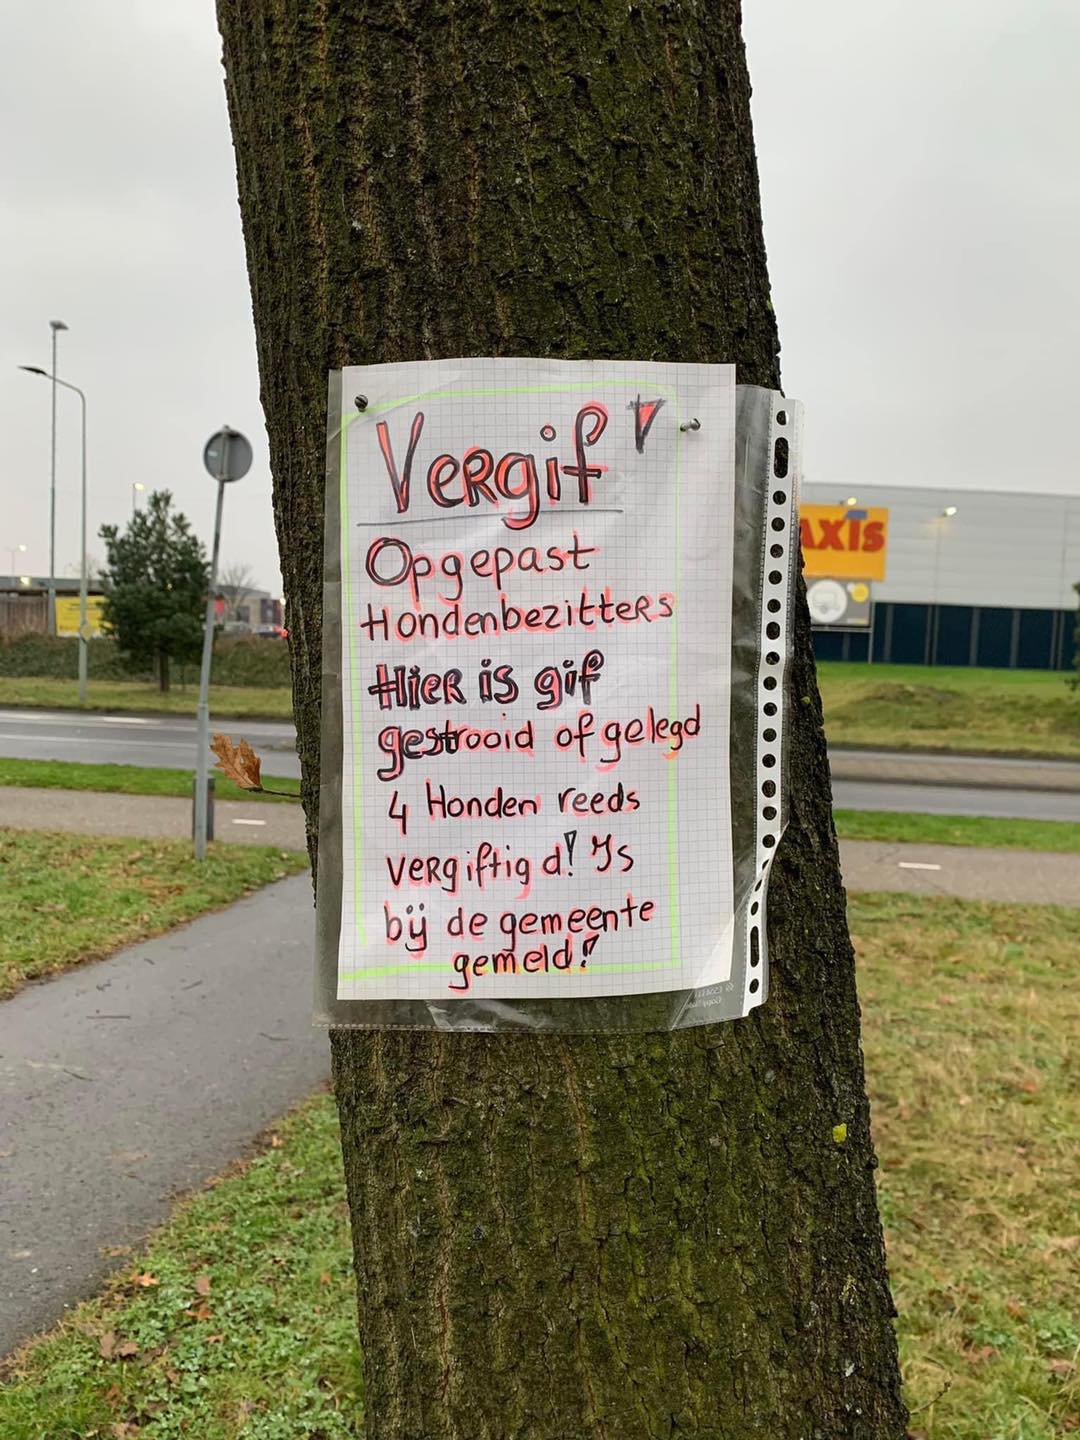 Vergif!
Opgepast
Hondenbezitters
Hier is gif
gestrooid of gelegd
4 Honden reeds
vergiftigd! Is
bij de gemeente
gemeld!
AXIS